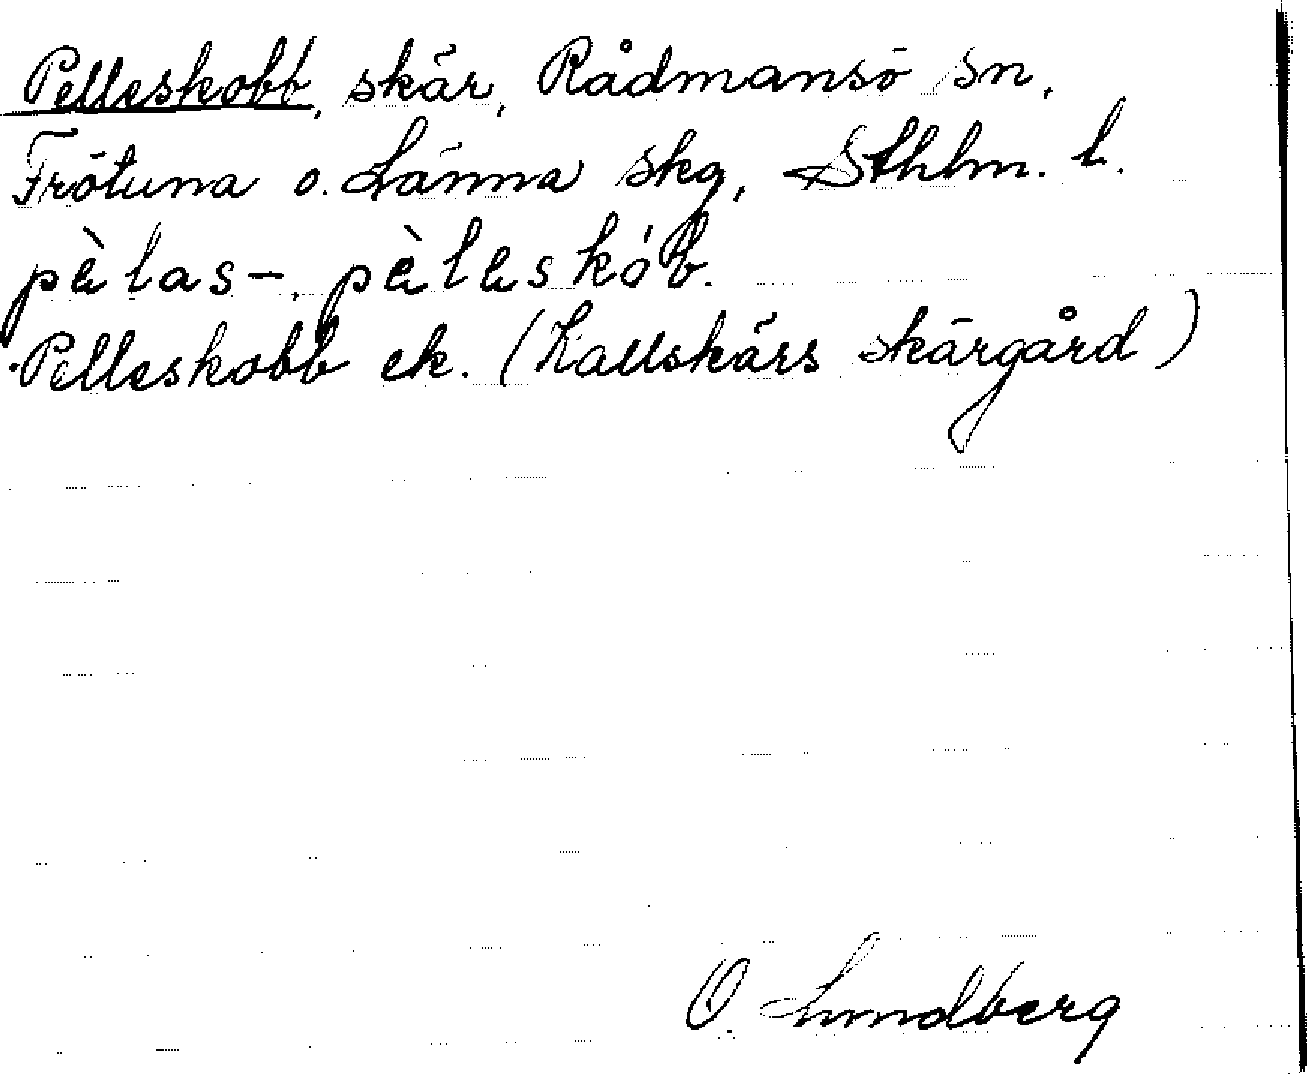 Pelleskobb, skär, Rådmansö sn,
Frötuna o. Länna skg, Sthlm. l.
pèlas-, pèlleskób.
Pelleskobb ek. (Kallskärs skärgård)
O. Lundberg